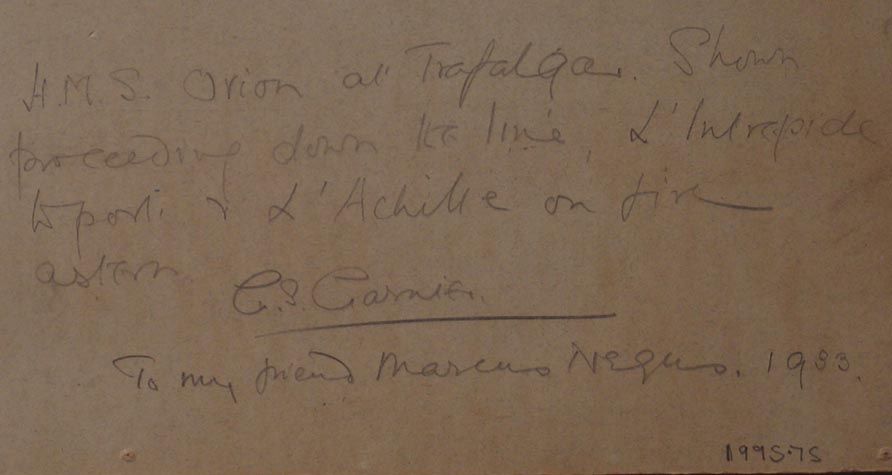 H.M.S. Orion at Trafalgar. Shown
proceeding down the line, L'Intrepide
to port. & L'Achille on fire
astern
G.S. Garnier.
To my friend Marcus Negus. 1983.
1995.75